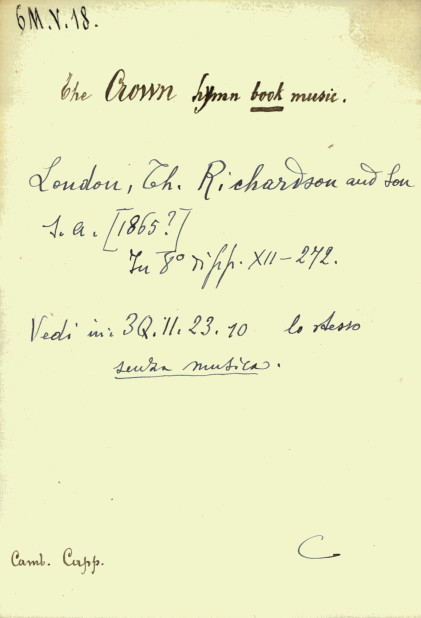 6 M. V. 18.
The Crown hymn book music.
London, Th. Richardson and Son
s. a. [1865?]
In 8° di pp. XII-272.
Vedi in: 3 Q. II. 23. 10 lo stesso
senza musica.
Camb. Capp.
C